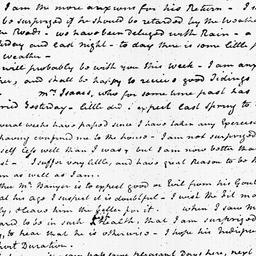 I am the more anxious for his Return - I
be surprized if he should be retarded by the Weathe
e Roads - we have been deluged with Rain - a
day and last night - to day there is some little p
Weather -
will probably be with you this week - I am anx
her, and shall be happy to receive good Tidings
- Mr. Isaacs, who for some time past has
ried Yesterday - little did I expect last Spring to
veral weeks have passed since I have taken any Exercise
having confined me to the house - I am not surprized
self less well than I was, but I am now better than
st - I suffer very little, and have great Reason to be th
m as well as I am.
the Mr. is to expect good or Evil from his Gout
at his age I suspect it is doubtful - I wish the
ly, I have him the better for it. when I saw h
ard to be in such Health, that I am surprized
y, to hear that he is otherwise - I hope his Indispo
hort Duration.
some pleasant Days here, next